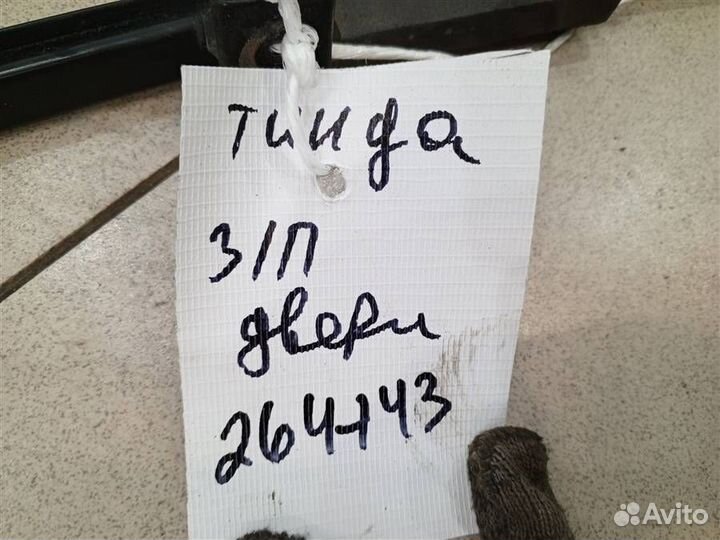 Тиида
З/П
двери
264743
Avito